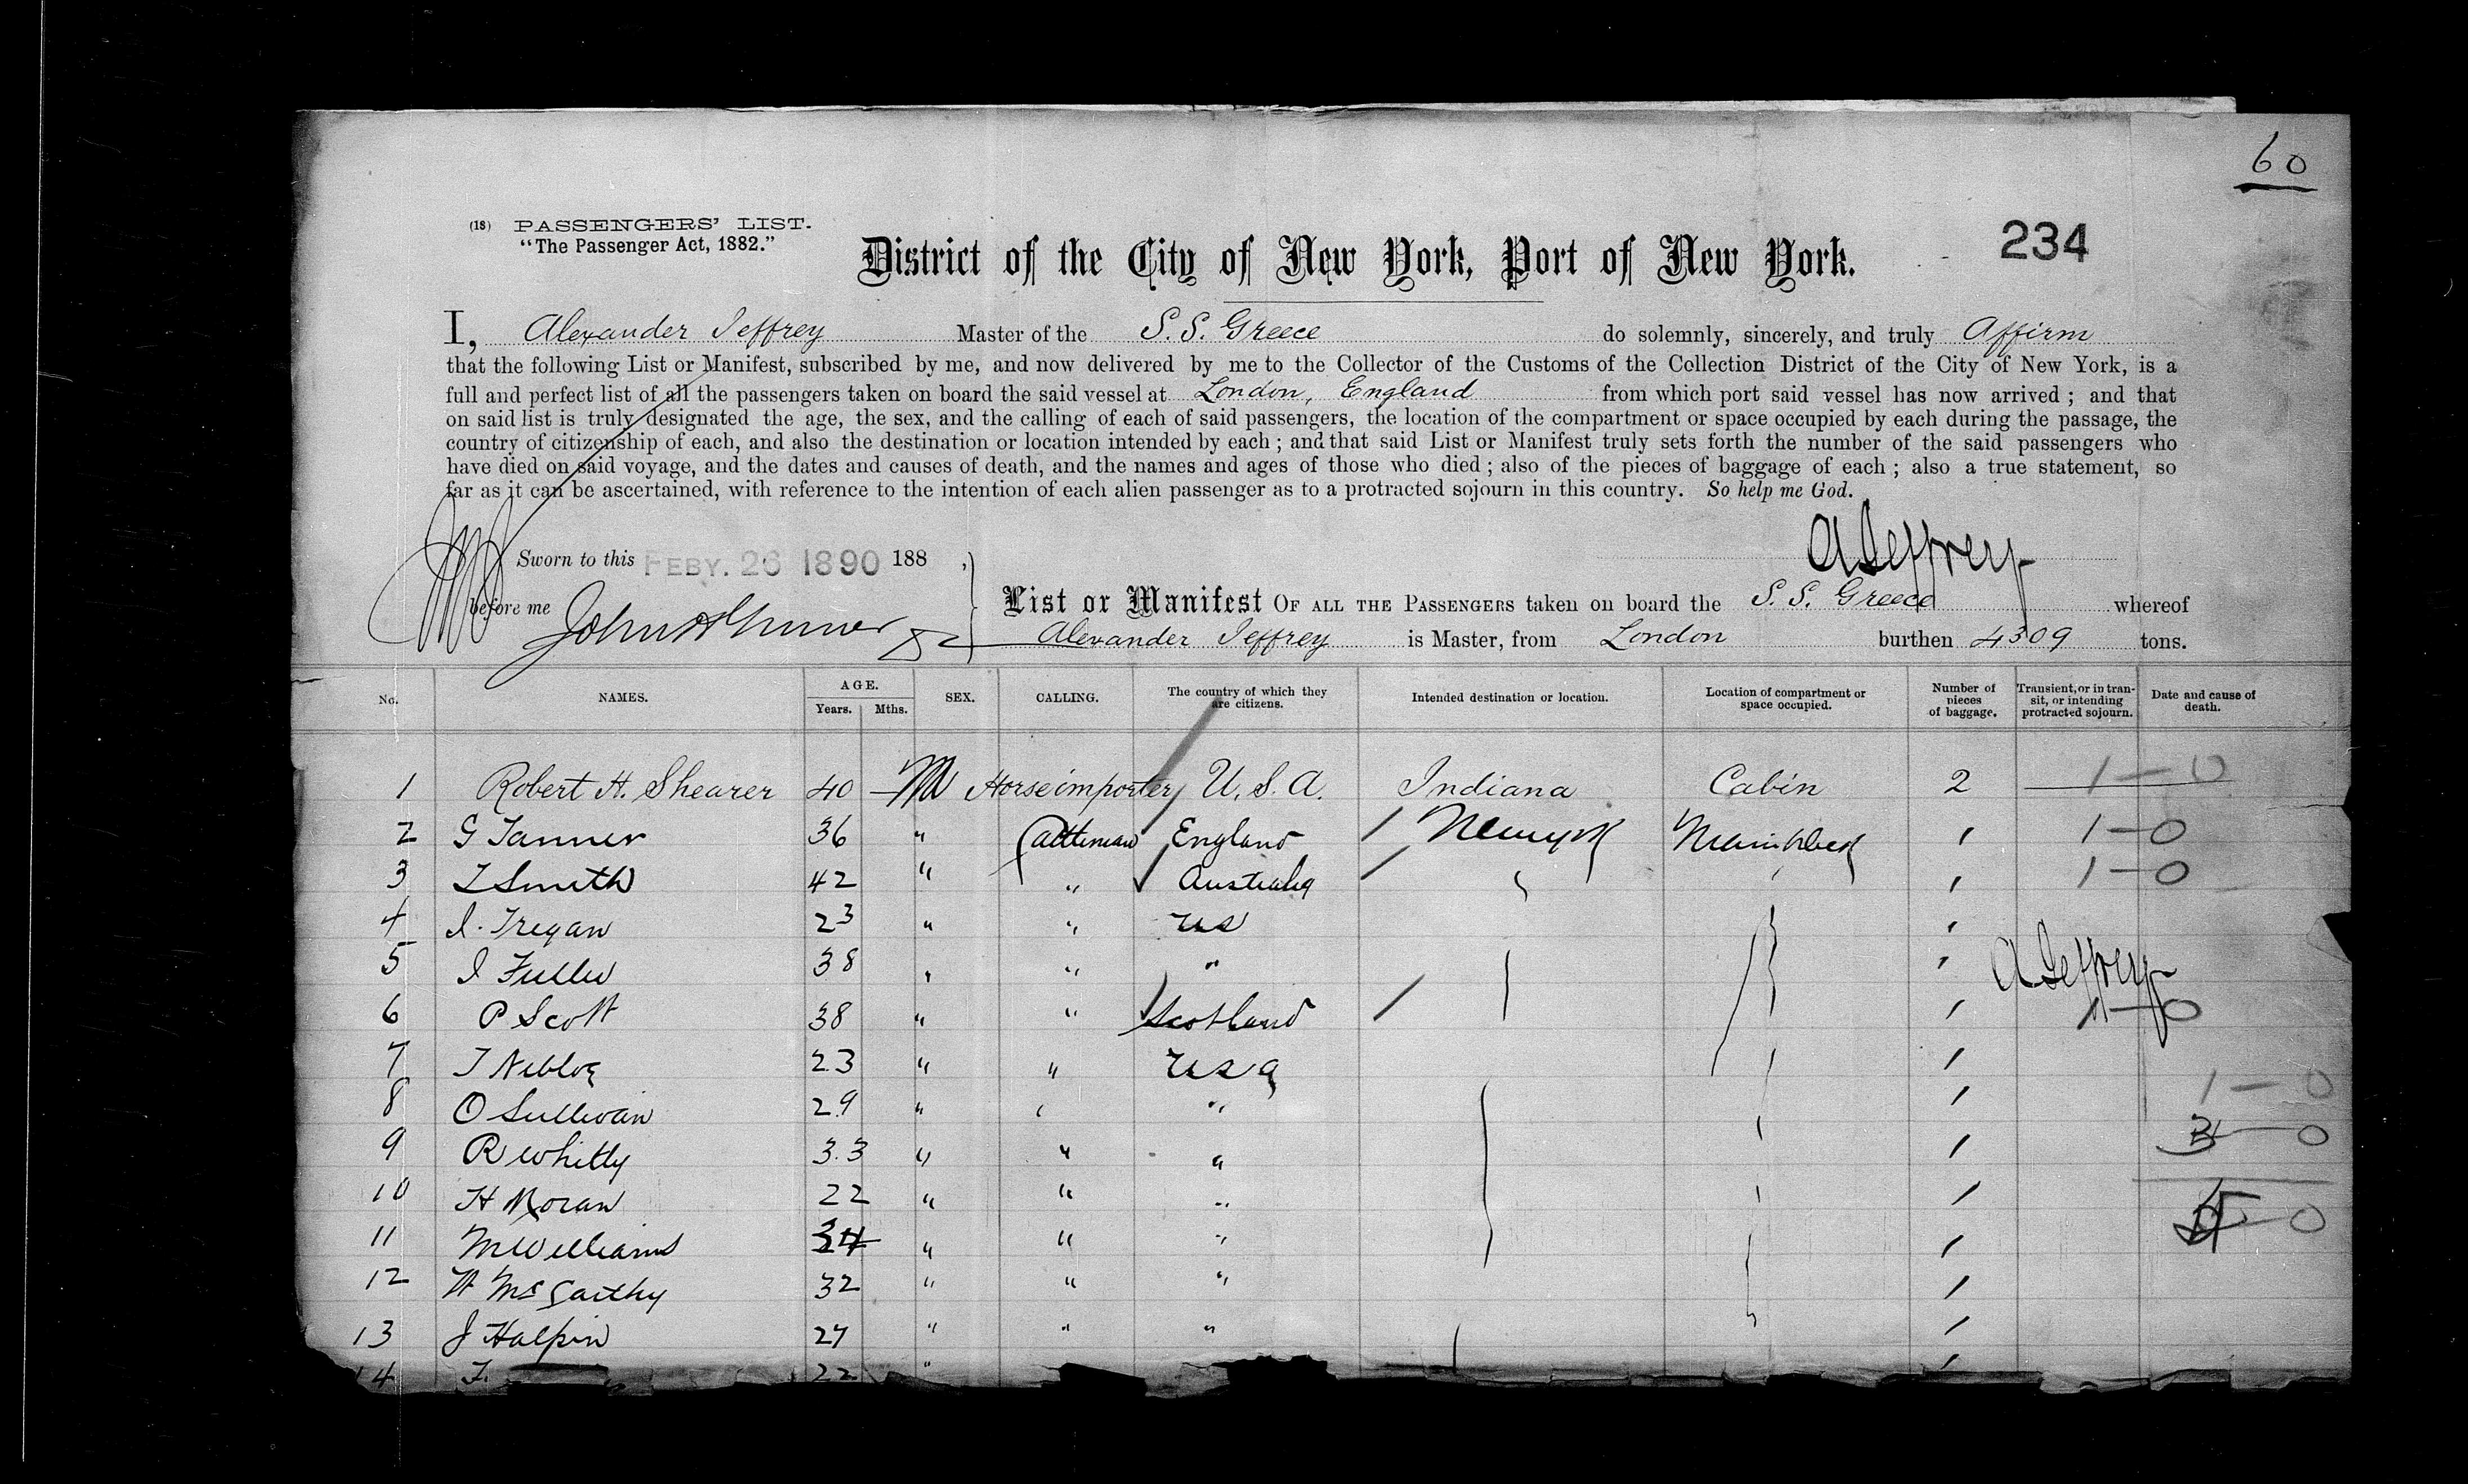 60
(18) PASSENGERS' LIST.
"The Passenger Act, 1882."
District of the City of New York, Port of New York.
234
I, Alexander Jeffrey Master of the S.S. Greece do solemnly, sincerely, and truly Affirm
that the following List or Manifest, subscribed by me, and now delivered by me to the Collector of the Customs of the Collection District of the City of New York, is a
full and perfect list of all the passengers taken on board the said vessel at London, England from which port said vessel has now arrived ; and that
on said list is truly designated the age, the sex, and the calling of each of said passengers, the location of the compartment or space occupied by each during the passage, the
country of citizenship of each, and also the destination or location intended by each ; and that said List or Manifest truly sets forth the number of the said passengers who
have died on said voyage, and the dates and causes of death, and the names and ages of those who died ; also of the pieces of baggage of each ; also a true statement, so
far as it can be ascertained, with reference to the intention of each alien passenger as to a protracted sojourn in this country. So help me God.
A Jeffrey
Sworn to this FEBY. 26 1890 188 ,
before me John
List or Manifest OF ALL THE PASSENGERS taken on board the S.S. Greece whereof
Alexander Jeffrey is Master, from London burthen 4309 tons.
No. NAMES. AGE. Years. Mths. SEX. CALLING. The country of which they are citizens. Intended destination or location. Location of compartment or space occupied. Number of pieces of baggage. Transient, or in transit, or intending protracted sojourn. Date and cause of death.
1 Robert H. Shearer 40 — M Horse importer U.S.A. Indiana Cabin 2 1—0
2 G Tanner 36 " Cattleman England / Newyork 1 1—0
3 T Smith 42 " " Australia / 1 1—0
4 23 " " US 1
5 J Fuller 38 " " " 1 A Jeffrey
6 P Scott 38 " " Scotland / 1 1—0
7 23 " " USA 1
8 O Sullivan 29 " " " 1 1—0
9 R Whitty 33 " " " 1 3—0
10 H Moran 22 " " " 1
11 M Williams 34 " " " 1 —0
12 McCarthy 32 " " " 1
13 J Halpin 27 " " " 1
14 22 " 1